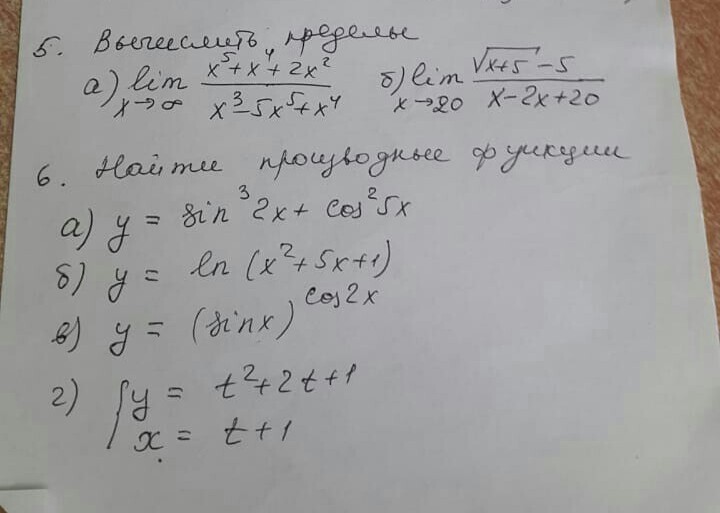 5. Вычислить пределы
а) lim x→∞ (x⁵+x⁴+2x²)/(x³-5x⁵+x⁴) б) lim x→20 (√(x+5) -5)/(x-2x+20)
6. Найти производные функции
а) y = sin³2x + cos²5x
б) y = ln (x²+5x+1)
в) y = (sinx)^cos2x
г) { y = t²+2t+1
x = t+1